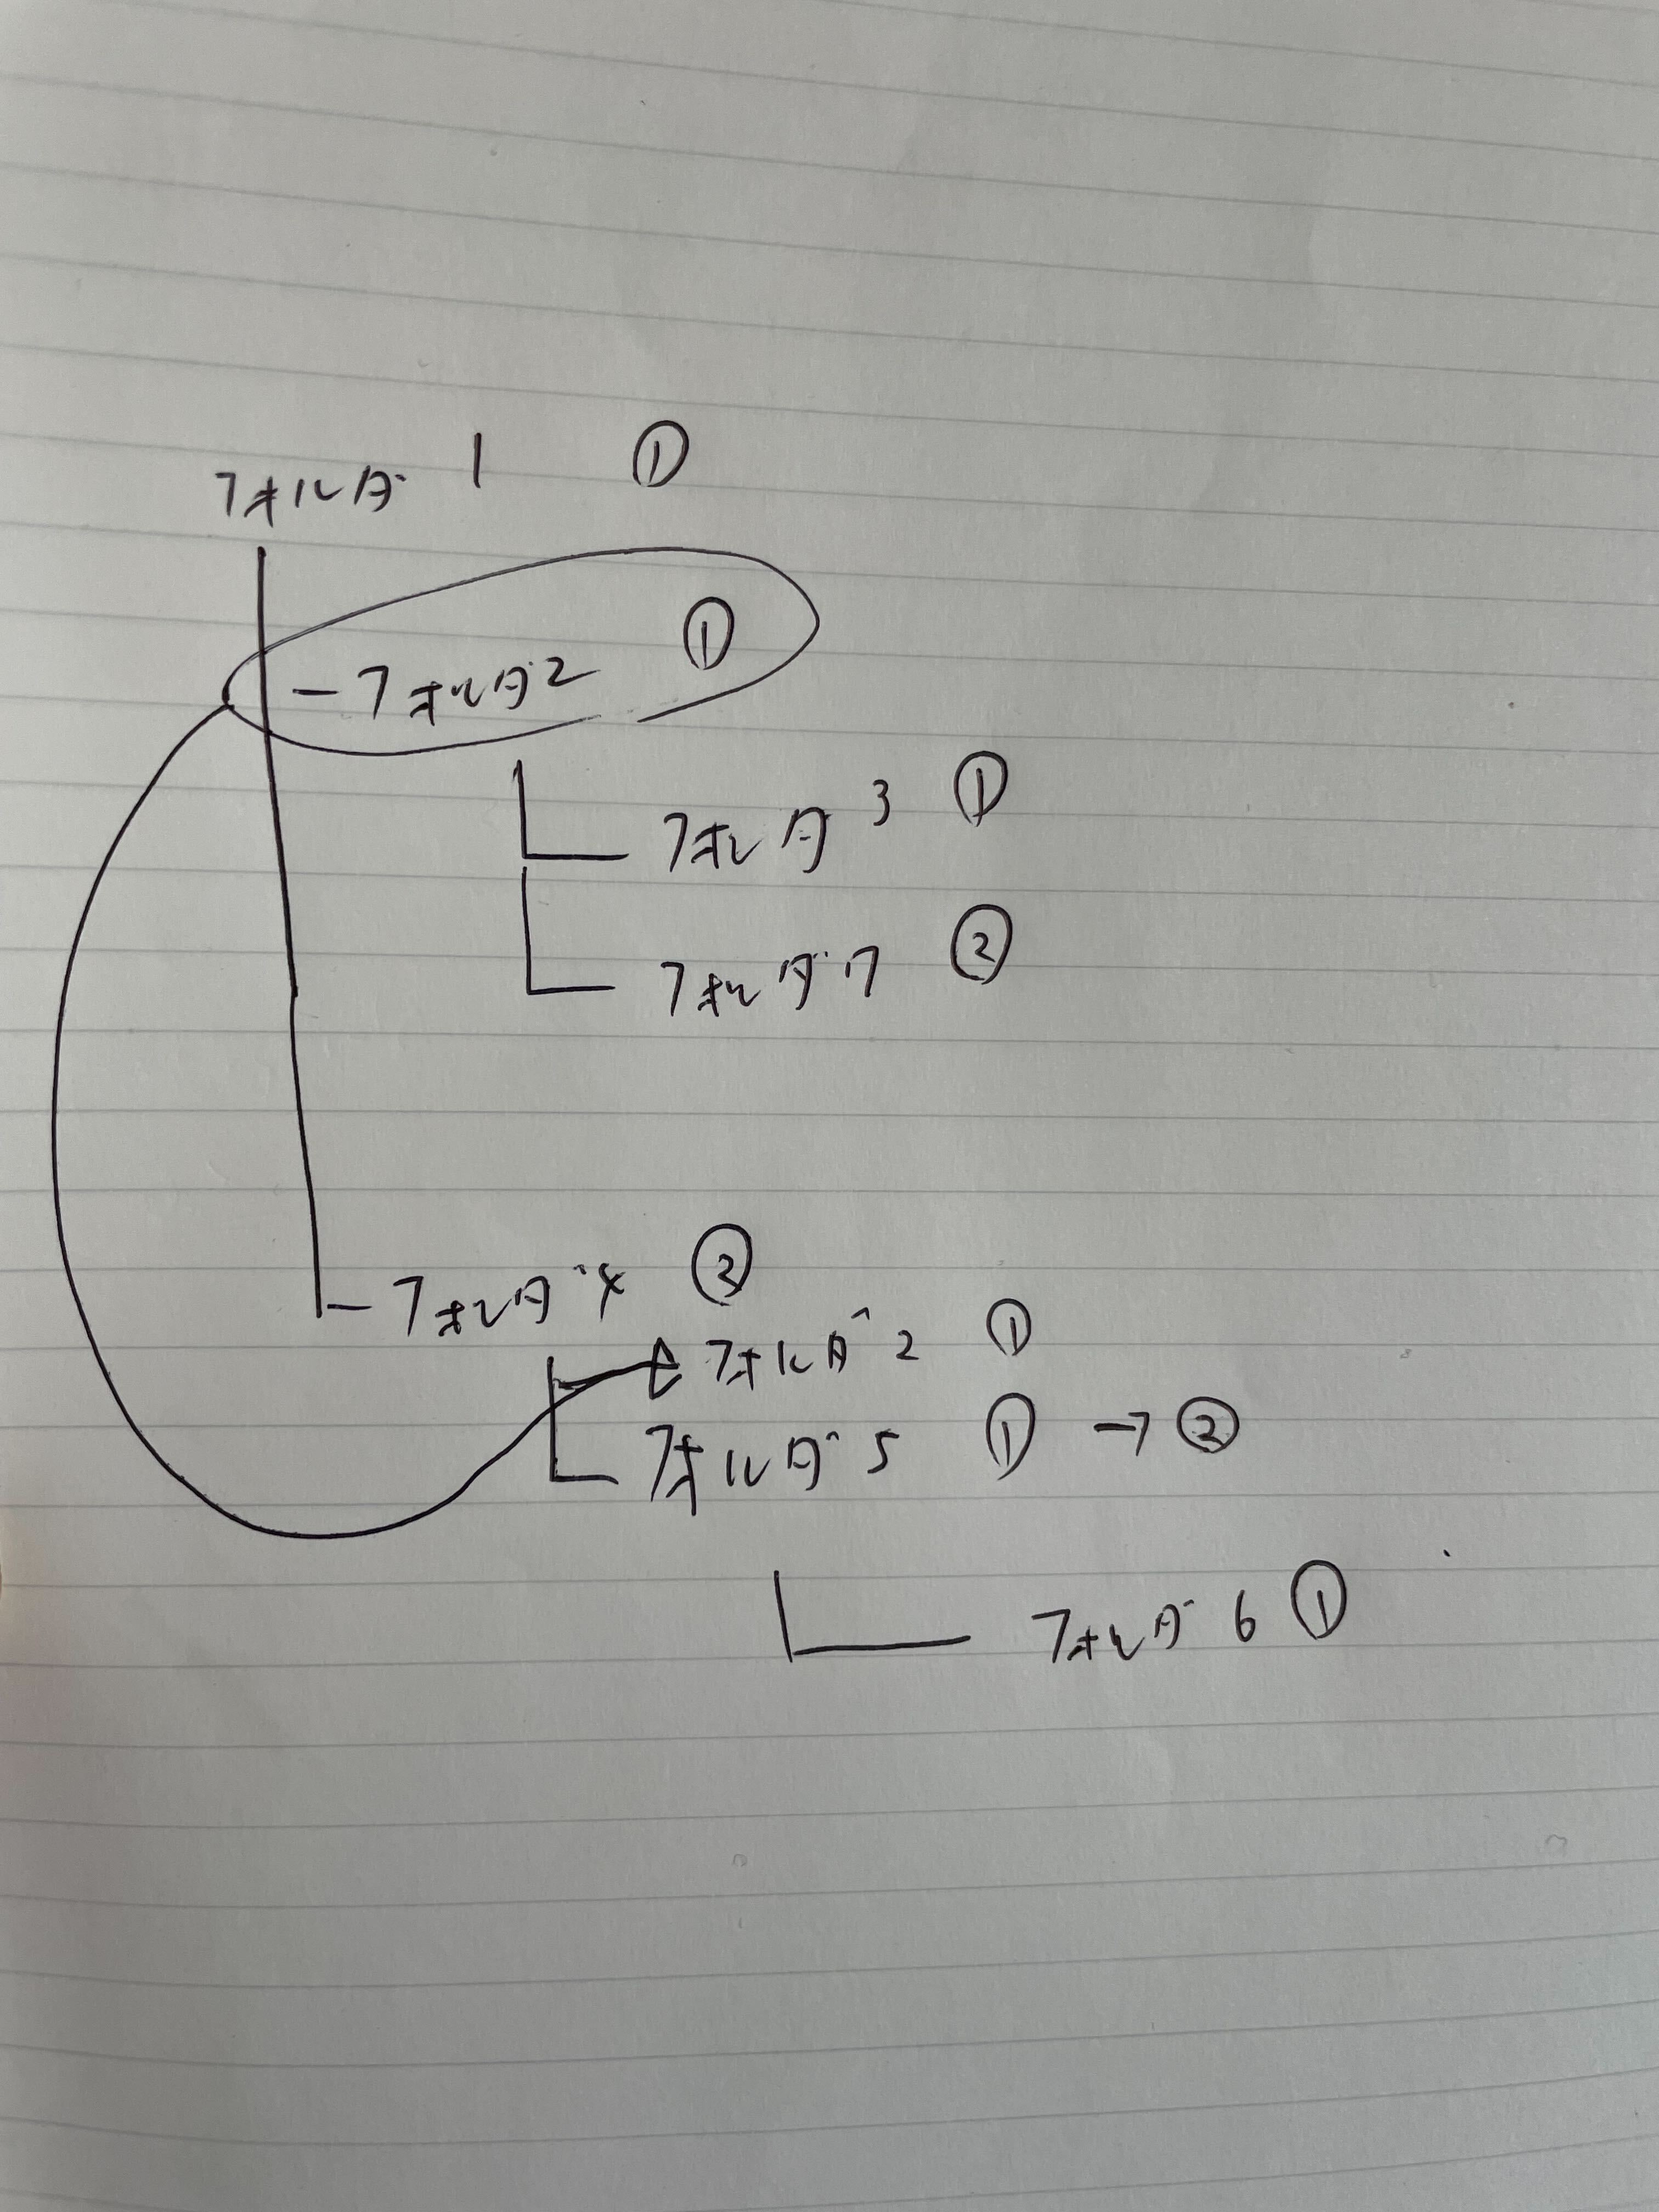 フォルダ 1 ①
- フォルダ2 ①
フォルダ 3 ①
フォルダ 7 ②
- フォルダ 4 ②
フォルダ 2 ①
フォルダ 5 ① → ②
フォルダ 6 ①